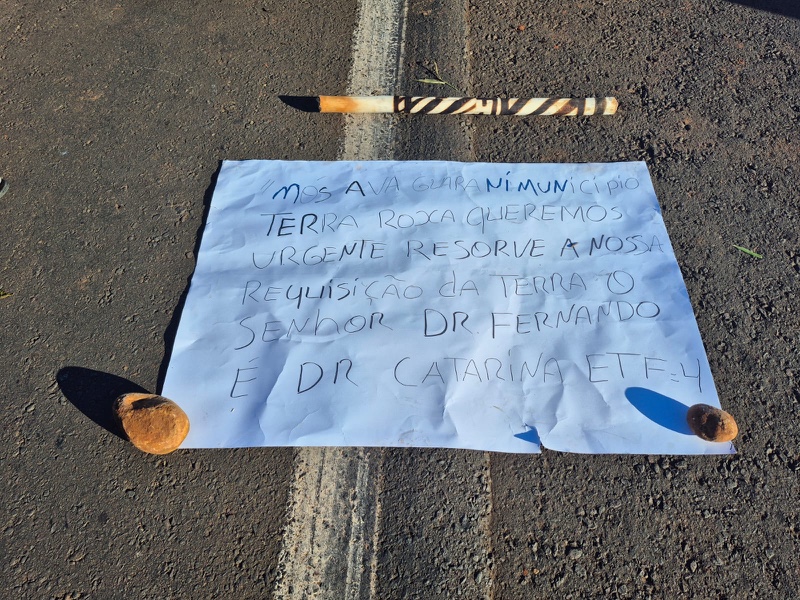 "MOS AVA GUARANÍ MUNICIPIO
TERRA ROXA QUEREMOS
URGENTE RESORVE A NOSSA
REQUISIÇÃO DA TERRA O
SENHOR DR. FERNANDO
É DR CATARINA ETF=4